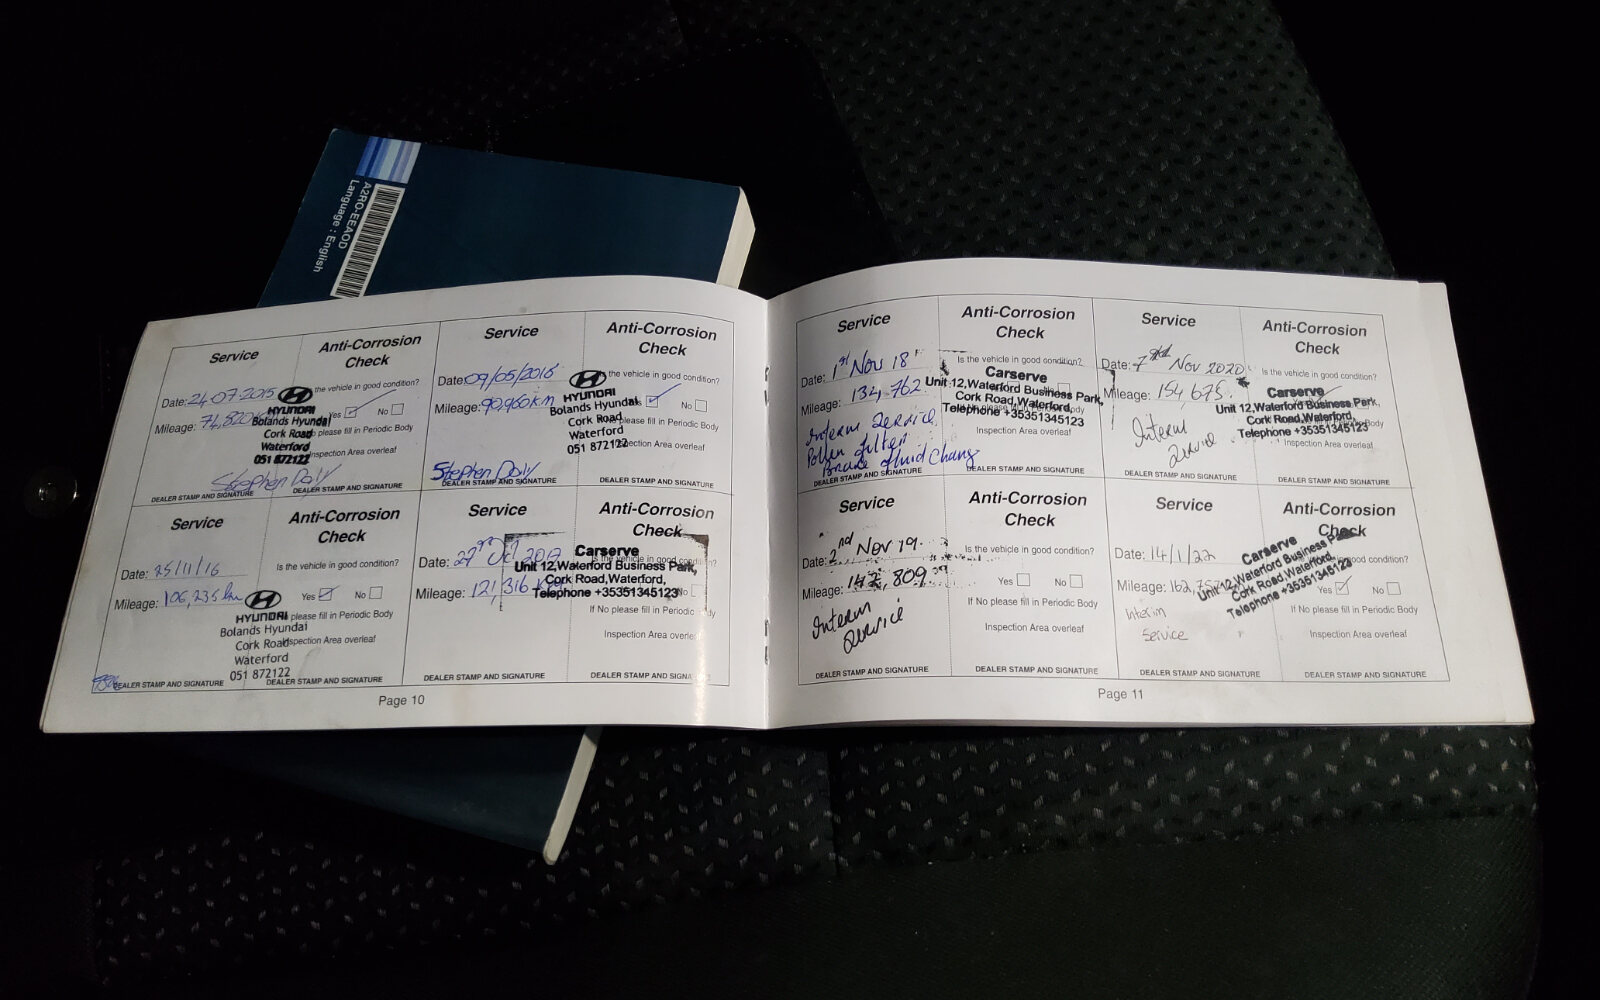 A2RO-EEAOD
Language : English
Service
Anti-Corrosion
Check
Date: 24-07-2015
the vehicle in good condition?
Mileage: 74,820
Yes No
HYUNDAI
Bolands Hyundai
Cork Road
Waterford
051 872122
please fill in Periodic Body
Inspection Area overleaf
Stephen Daly
DEALER STAMP AND SIGNATURE
DEALER STAMP AND SIGNATURE
Service
Anti-Corrosion
Check
Date: 09/05/2016
the vehicle in good condition?
Mileage: 90,960km
No
HYUNDAI
Bolands Hyundai
Cork Road
Waterford
051 872122
please fill in Periodic Body
Inspection Area overleaf
Stephen Daly
DEALER STAMP AND SIGNATURE
DEALER STAMP AND SIGNATURE
Service
Anti-Corrosion
Check
Date: 25/11/16
Is the vehicle in good condition?
Mileage: 106,235 km
Yes No
HYUNDAI
Bolands Hyundai
Cork Road
Waterford
051 872122
please fill in Periodic Body
Inspection Area overleaf
DEALER STAMP AND SIGNATURE
DEALER STAMP AND SIGNATURE
Service
Anti-Corrosion
Check
Date: 27th Oct 2017
vehicle in good condition?
Mileage: 121,316 km
No
Carserve
Unit 12,Waterford Business Park,
Cork Road,Waterford,
Telephone +35351345123
If No please fill in Periodic Body
Inspection Area overleaf
DEALER STAMP AND SIGNATURE
DEALER STAMP AND SIGNATURE
Page 10
Service
Anti-Corrosion
Check
Date: 1st Nov 18
Is the vehicle in good condition?
Mileage: 134,762
Carserve
Unit 12,Waterford Business Park,
Cork Road,Waterford,
Telephone +35351345123
Inspection Area overleaf
Interim Service
Pollen filter
Brake fluid Change
DEALER STAMP AND SIGNATURE
DEALER STAMP AND SIGNATURE
Service
Anti-Corrosion
Check
Date: Nov 2020
Is the vehicle in good condition?
Mileage: 154 675
Carserve
Unit 12,Waterford Business Park,
Cork Road,Waterford,
Telephone +35351345123
Inspection Area overleaf
Interim
Service
DEALER STAMP AND SIGNATURE
DEALER STAMP AND SIGNATURE
Service
Anti-Corrosion
Check
Date: 2nd Nov 19
Is the vehicle in good condition?
Mileage: 142,809
Yes No
If No please fill in Periodic Body
Inspection Area overleaf
Interim
Service
DEALER STAMP AND SIGNATURE
DEALER STAMP AND SIGNATURE
Service
Anti-Corrosion
Check
Date: 14/1/22
good condition?
Mileage:
Yes No
Carserve
Unit 12,Waterford Business Park,
Cork Road,Waterford,
Telephone +35351345123
If No please fill in Periodic Body
Inspection Area overleaf
Interim
Service
DEALER STAMP AND SIGNATURE
DEALER STAMP AND SIGNATURE
Page 11